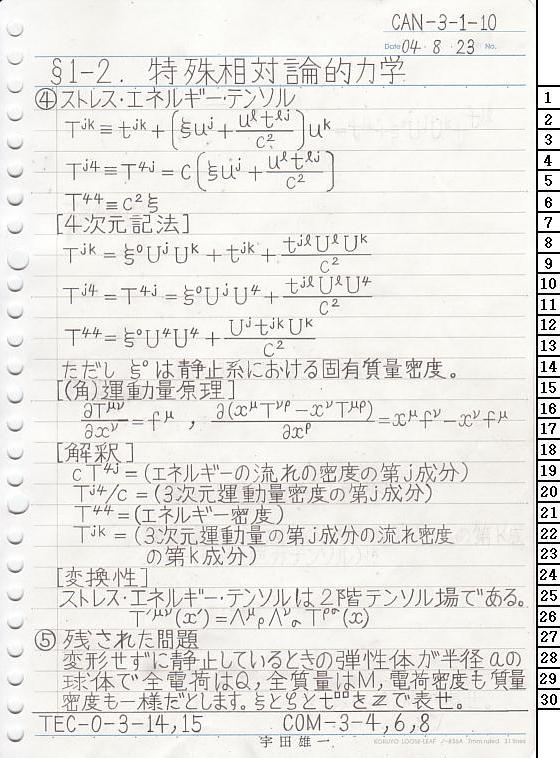 CAN-3-1-10
Date 04・8・23 No.
§1-2. 特殊相対論的力学
④ストレス・エネルギー・テンソル
T^{jk}≡t^{jk}+[ξu^j+u^ℓt^{ℓj}/c²]u^k
T^{j4}≡T^{4j}=c[ξu^j+u^ℓt^{ℓj}/c²]
T^{44}≡c²ξ
[4次元記法]
T^{jk}=ξ⁰U^jU^k+t^{jk}+t^{jℓ}U^ℓU^k/c²
T^{j4}=T^{4j}=ξ⁰U^jU^4+t^{jℓ}U^ℓU^4/c²
T^{44}=ξ⁰U^4U^4+U^jt^{jk}U^k/c²
ただし ξ⁰は静止系における固有質量密度。
[(角)運動量原理]
∂T^{μν}/∂x^ν=f^μ , ∂(x^μT^{νρ}-x^νT^{μρ})/∂x^ρ=x^μf^ν-x^νf^μ
[解釈]
cT^{4j}=(エネルギーの流れの密度の第j成分)
T^{j4}/c=(3次元運動量密度の第j成分)
T^{44}=(エネルギー密度)
T^{jk}=(3次元運動量の第j成分の流れ密度
の第k成分)
[変換性]
ストレス・エネルギー・テンソルは2階テンソル場である。
T'^{μν}(x')=Λ^μ_ρΛ^ν_σT^{ρσ}(x)
⑤残された問題
変形せずに静止しているときの弾性体が半径aの
球体で全電荷はQ,全質量はM,電荷密度も質量
密度も一様だとします。ξとζとt^{□□}をzで表せ。
TEC-0-3-14,15 COM-3-4,6,8
宇田雄一
KOKUYO LOOSE-LEAF ノ-836A 7mm ruled 31 lines
1
2
3
4
5
6
7
8
9
10
11
12
13
14
15
16
17
18
19
20
21
22
23
24
25
26
27
28
29
30